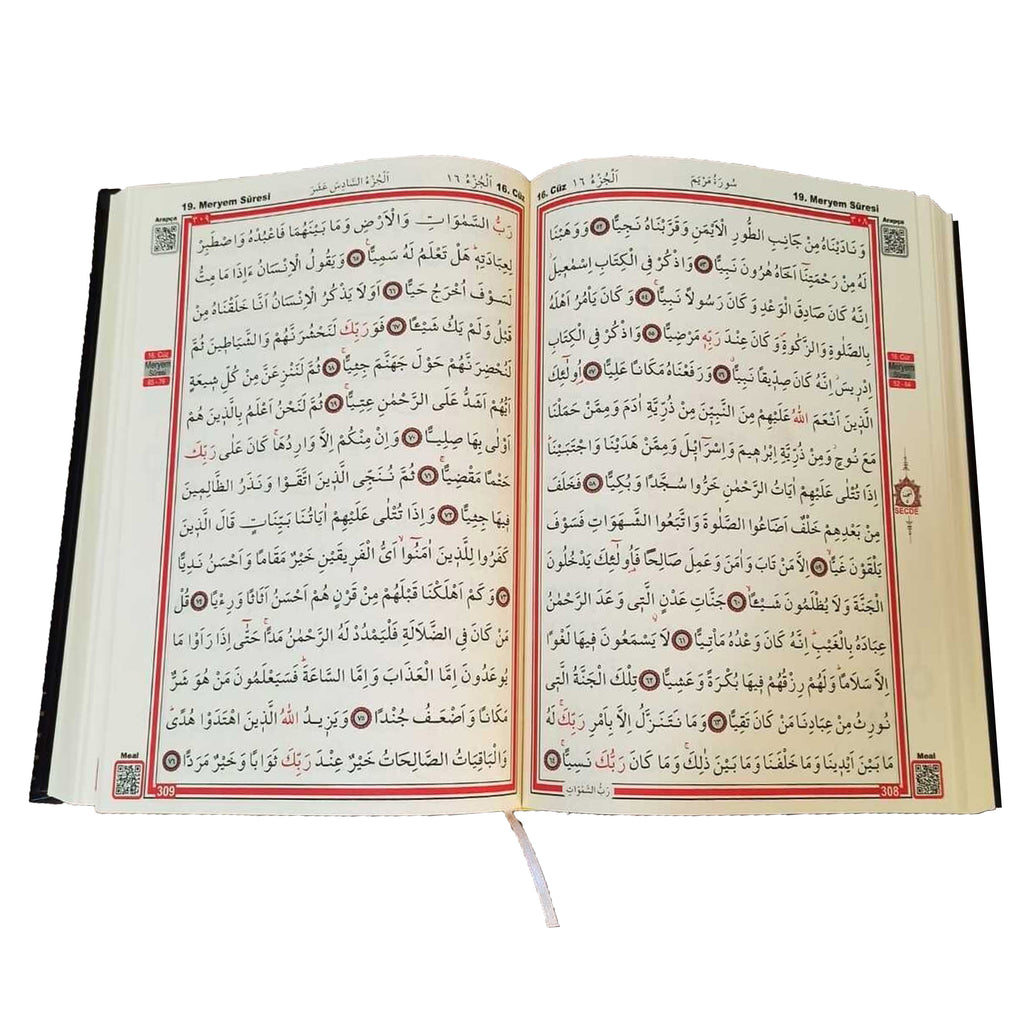 سُورَةُ مَرْيَمَ
19. Meryem Sûresi
اَلْجُزْءُ ١٦
16. Cüz
٣٠٨
Arapça
وَنَادَيْنَاهُ مِنْ جَانِبِ الطُّورِ الْاَيْمَنِ وَقَرَّبْنَاهُ نَجِيًّا ﴿٥٢﴾ وَوَهَبْنَا
لَهُ مِنْ رَحْمَتِنَٓا اَخَاهُ هٰرُونَ نَبِيًّا ﴿٥٣﴾ وَاذْكُرْ فِي الْكِتَابِ اِسْمٰع۪يلَۘ
اِنَّهُ كَانَ صَادِقَ الْوَعْدِ وَكَانَ رَسُولًا نَبِيًّاۚ ﴿٥٤﴾ وَكَانَ يَأْمُرُ اَهْلَهُ
بِالصَّلٰوةِ وَالزَّكٰوةِ وَكَانَ عِنْدَ رَبِّه۪ مَرْضِيًّا ﴿٥٥﴾ وَاذْكُرْ فِي الْكِتَابِ
اِدْر۪يسَۘ اِنَّهُ كَانَ صِدّ۪يقًا نَبِيًّاۗ ﴿٥٦﴾ وَرَفَعْنَاهُ مَكَانًا عَلِيًّا ﴿٥٧﴾ اُو۬لٰٓئِكَ
الَّذ۪ينَ اَنْعَمَ اللّٰهُ عَلَيْهِمْ مِنَ النَّبِيّ۪نَ مِنْ ذُرِّيَّةِ اٰدَمَ وَمِمَّنْ حَمَلْنَا
مَعَ نُوحٍۘ وَمِنْ ذُرِّيَّةِ اِبْرٰه۪يمَ وَاِسْرَٓائ۪لَ وَمِمَّنْ هَدَيْنَا وَاجْتَبَيْنَاۜ
اِذَا تُتْلٰى عَلَيْهِمْ اٰيَاتُ الرَّحْمٰنِ خَرُّوا سُجَّدًا وَبُكِيًّا ﴿٥٨﴾ فَخَلَفَ
مِنْ بَعْدِهِمْ خَلْفٌ اَضَاعُوا الصَّلٰوةَ وَاتَّبَعُوا الشَّهَوَاتِ فَسَوْفَ
يَلْقَوْنَ غَيًّاۙ ﴿٥٩﴾ اِلَّا مَنْ تَابَ وَاٰمَنَ وَعَمِلَ صَالِحًا فَاُو۬لٰٓئِكَ يَدْخُلُونَ
الْجَنَّةَ وَلَا يُظْلَمُونَ شَيْـًٔاۙ ﴿٦٠﴾ جَنَّاتِ عَدْنٍ الَّت۪ي وَعَدَ الرَّحْمٰنُ
عِبَادَهُ بِالْغَيْبِۜ اِنَّهُ كَانَ وَعْدُهُ مَأْتِيًّا ﴿٦١﴾ لَا يَسْمَعُونَ ف۪يهَا لَغْوًا
اِلَّا سَلَامًاۜ وَلَهُمْ رِزْقُهُمْ ف۪يهَا بُكْرَةً وَعَشِيًّا ﴿٦٢﴾ تِلْكَ الْجَنَّةُ الَّت۪ي
نُورِثُ مِنْ عِبَادِنَا مَنْ كَانَ تَقِيًّا ﴿٦٣﴾ وَمَا نَتَنَزَّلُ اِلَّا بِاَمْرِ رَبِّكَۚ لَهُ
مَا بَيْنَ اَيْد۪ينَا وَمَا خَلْفَنَا وَمَا بَيْنَ ذٰلِكَۚ وَمَا كَانَ رَبُّكَ نَسِيًّاۚ ﴿٦٤﴾
رَبُّ السَّمٰوَاتِ
308
16. Cüz
Meryem
Sûresi
52 - 64
SECDE
Meal
اَلْجُزْءُ السَّادِسُ عَشَرَ
اَلْجُزْءُ ١٦
16. Cüz
19. Meryem Sûresi
٣٠٩
Arapça
رَبُّ السَّمٰوَاتِ وَالْاَرْضِ وَمَا بَيْنَهُمَا فَاعْبُدْهُ وَاصْطَبِرْ
لِعِبَادَتِه۪ۜ هَلْ تَعْلَمُ لَهُ سَمِيًّا۟ ﴿٦٥﴾ وَيَقُولُ الْاِنْسَانُ ءَاِذَا مَا مِتُّ
لَسَوْفَ اُخْرَجُ حَيًّا ﴿٦٦﴾ اَوَلَا يَذْكُرُ الْاِنْسَانُ اَنَّا خَلَقْنَاهُ مِنْ
قَبْلُ وَلَمْ يَكُ شَيْـًٔا ﴿٦٧﴾ فَوَرَبِّكَ لَنَحْشُرَنَّهُمْ وَالشَّيَاط۪ينَ ثُمَّ
لَنُحْضِرَنَّهُمْ حَوْلَ جَهَنَّمَ جِثِيًّاۚ ﴿٦٨﴾ ثُمَّ لَنَنْزِعَنَّ مِنْ كُلِّ ش۪يعَةٍ
اَيُّهُمْ اَشَدُّ عَلَى الرَّحْمٰنِ عِتِيًّاۚ ﴿٦٩﴾ ثُمَّ لَنَحْنُ اَعْلَمُ بِالَّذ۪ينَ هُمْ
اَوْلٰى بِهَا صِلِيًّا ﴿٧٠﴾ وَاِنْ مِنْكُمْ اِلَّا وَارِدُهَاۚ كَانَ عَلٰى رَبِّكَ
حَتْمًا مَقْضِيًّاۚ ﴿٧١﴾ ثُمَّ نُنَجِّي الَّذ۪ينَ اتَّقَوْا وَنَذَرُ الظَّالِم۪ينَ
ف۪يهَا جِثِيًّا ﴿٧٢﴾ وَاِذَا تُتْلٰى عَلَيْهِمْ اٰيَاتُنَا بَيِّنَاتٍ قَالَ الَّذ۪ينَ
كَفَرُوا لِلَّذ۪ينَ اٰمَنُٓواۙ اَيُّ الْفَر۪يقَيْنِ خَيْرٌ مَقَامًا وَاَحْسَنُ نَدِيًّا
﴿٧٣﴾ وَكَمْ اَهْلَكْنَا قَبْلَهُمْ مِنْ قَرْنٍ هُمْ اَحْسَنُ اَثَاثًا وَرِءْيًا ﴿٧٤﴾ قُلْ
مَنْ كَانَ فِي الضَّلَالَةِ فَلْيَمْدُدْ لَهُ الرَّحْمٰنُ مَدًّاۚ حَتّٰٓى اِذَا رَاَوْا مَا
يُوعَدُونَ اِمَّا الْعَذَابَ وَاِمَّا السَّاعَةَۜ فَسَيَعْلَمُونَ مَنْ هُوَ شَرٌّ
مَكَانًا وَاَضْعَفُ جُنْدًا ﴿٧٥﴾ وَيَز۪يدُ اللّٰهُ الَّذ۪ينَ اهْتَدَوْا هُدًىۜ
وَالْبَاقِيَاتُ الصَّالِحَاتُ خَيْرٌ عِنْدَ رَبِّكَ ثَوَابًا وَخَيْرٌ مَرَدًّا ﴿٧٦﴾
309
16. Cüz
Meryem
Sûresi
65 - 76
Meal